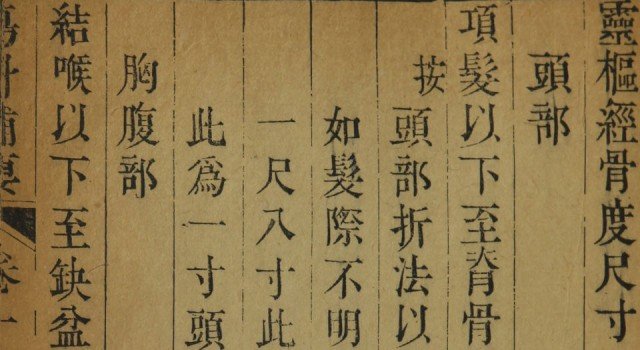 靈樞經骨度尺寸
頭部
項髮以下至脊骨
按頭部折法以
如髮際不明
一尺八寸此
此為一寸頭
胸腹部
結喉以下至缺盆